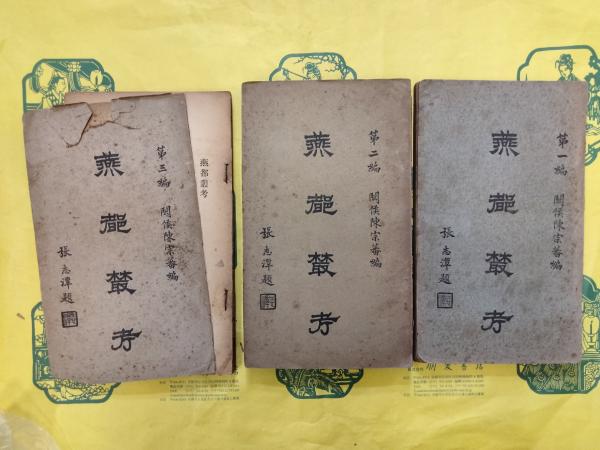 第三編 閩侯陳宗蕃編
燕都叢考
張志潭題
燕都叢考
第二編 閩侯陳宗蕃編
燕都叢考
張志潭題
第一編 閩侯陳宗蕃編
燕都叢考
張志潭題